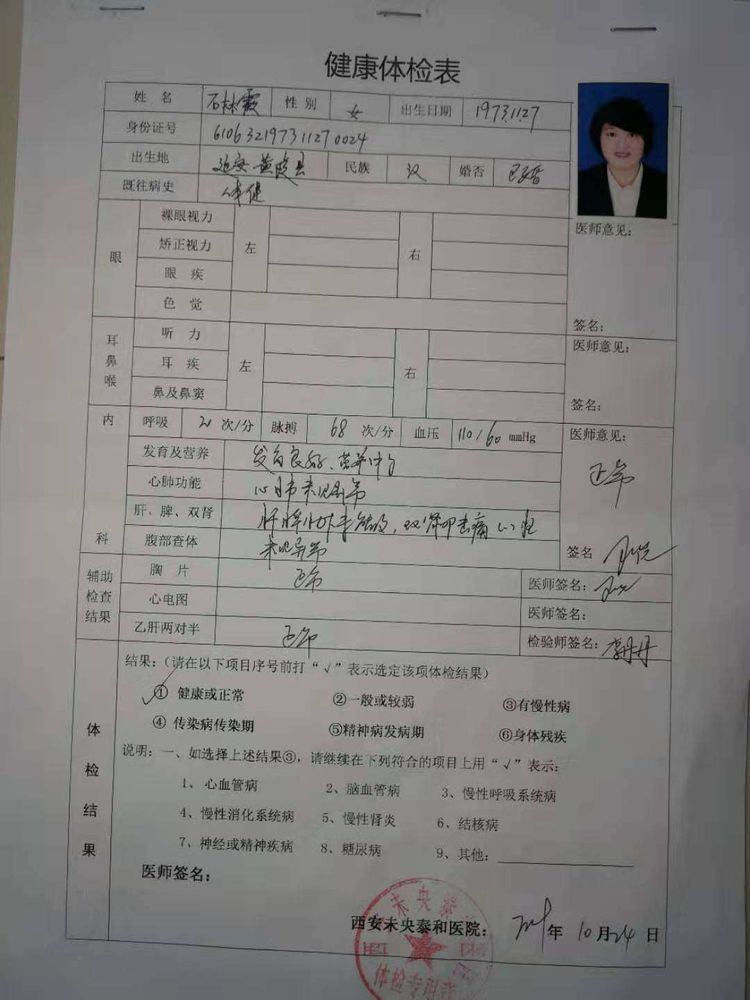 健康体检表
姓 名 石林霞 性 别 女 出生日期 1973.11.27
身份证号 610632197311270024
出生地 延安 黄陵县 民族 汉 婚否 已婚
既往病史 体健
医师意见：
眼 裸眼视力 左 右
矫正视力
眼 疾
色 觉
签名：
耳鼻喉 听 力 左 右 医师意见：
耳 疾
鼻及鼻窦
签名：
内科 呼吸 20 次/分 脉搏 68 次/分 血压 110/60 mmHg 医师意见：
发育及营养 发育良好、营养中 正常
心肺功能 心肺未见异常
肝、脾、双肾 肝脾肋下未触及，双肾叩击痛(-)
腹部查体 未见异常 签名
辅助检查结果 胸 片 正常 医师签名：
心电图 医师签名：
乙肝两对半 正常 检验师签名：李丹丹
体检结果
结果：（请在以下项目序号前打“√”表示选定该项体检结果）
√① 健康或正常 ②一般或较弱 ③有慢性病
④ 传染病传染期 ⑤精神病发病期 ⑥身体残疾
说明：一、如选择上述结果③，请继续在下列符合的项目上用“√”表示：
1、心血管病 2、脑血管病 3、慢性呼吸系统病
4、慢性消化系统病 5、慢性肾炎 6、结核病
7、神经或精神疾病 8、糖尿病 9、其他：
医师签名：
西安未央泰和医院： 年 10 月 24 日
未央泰
体检专用章